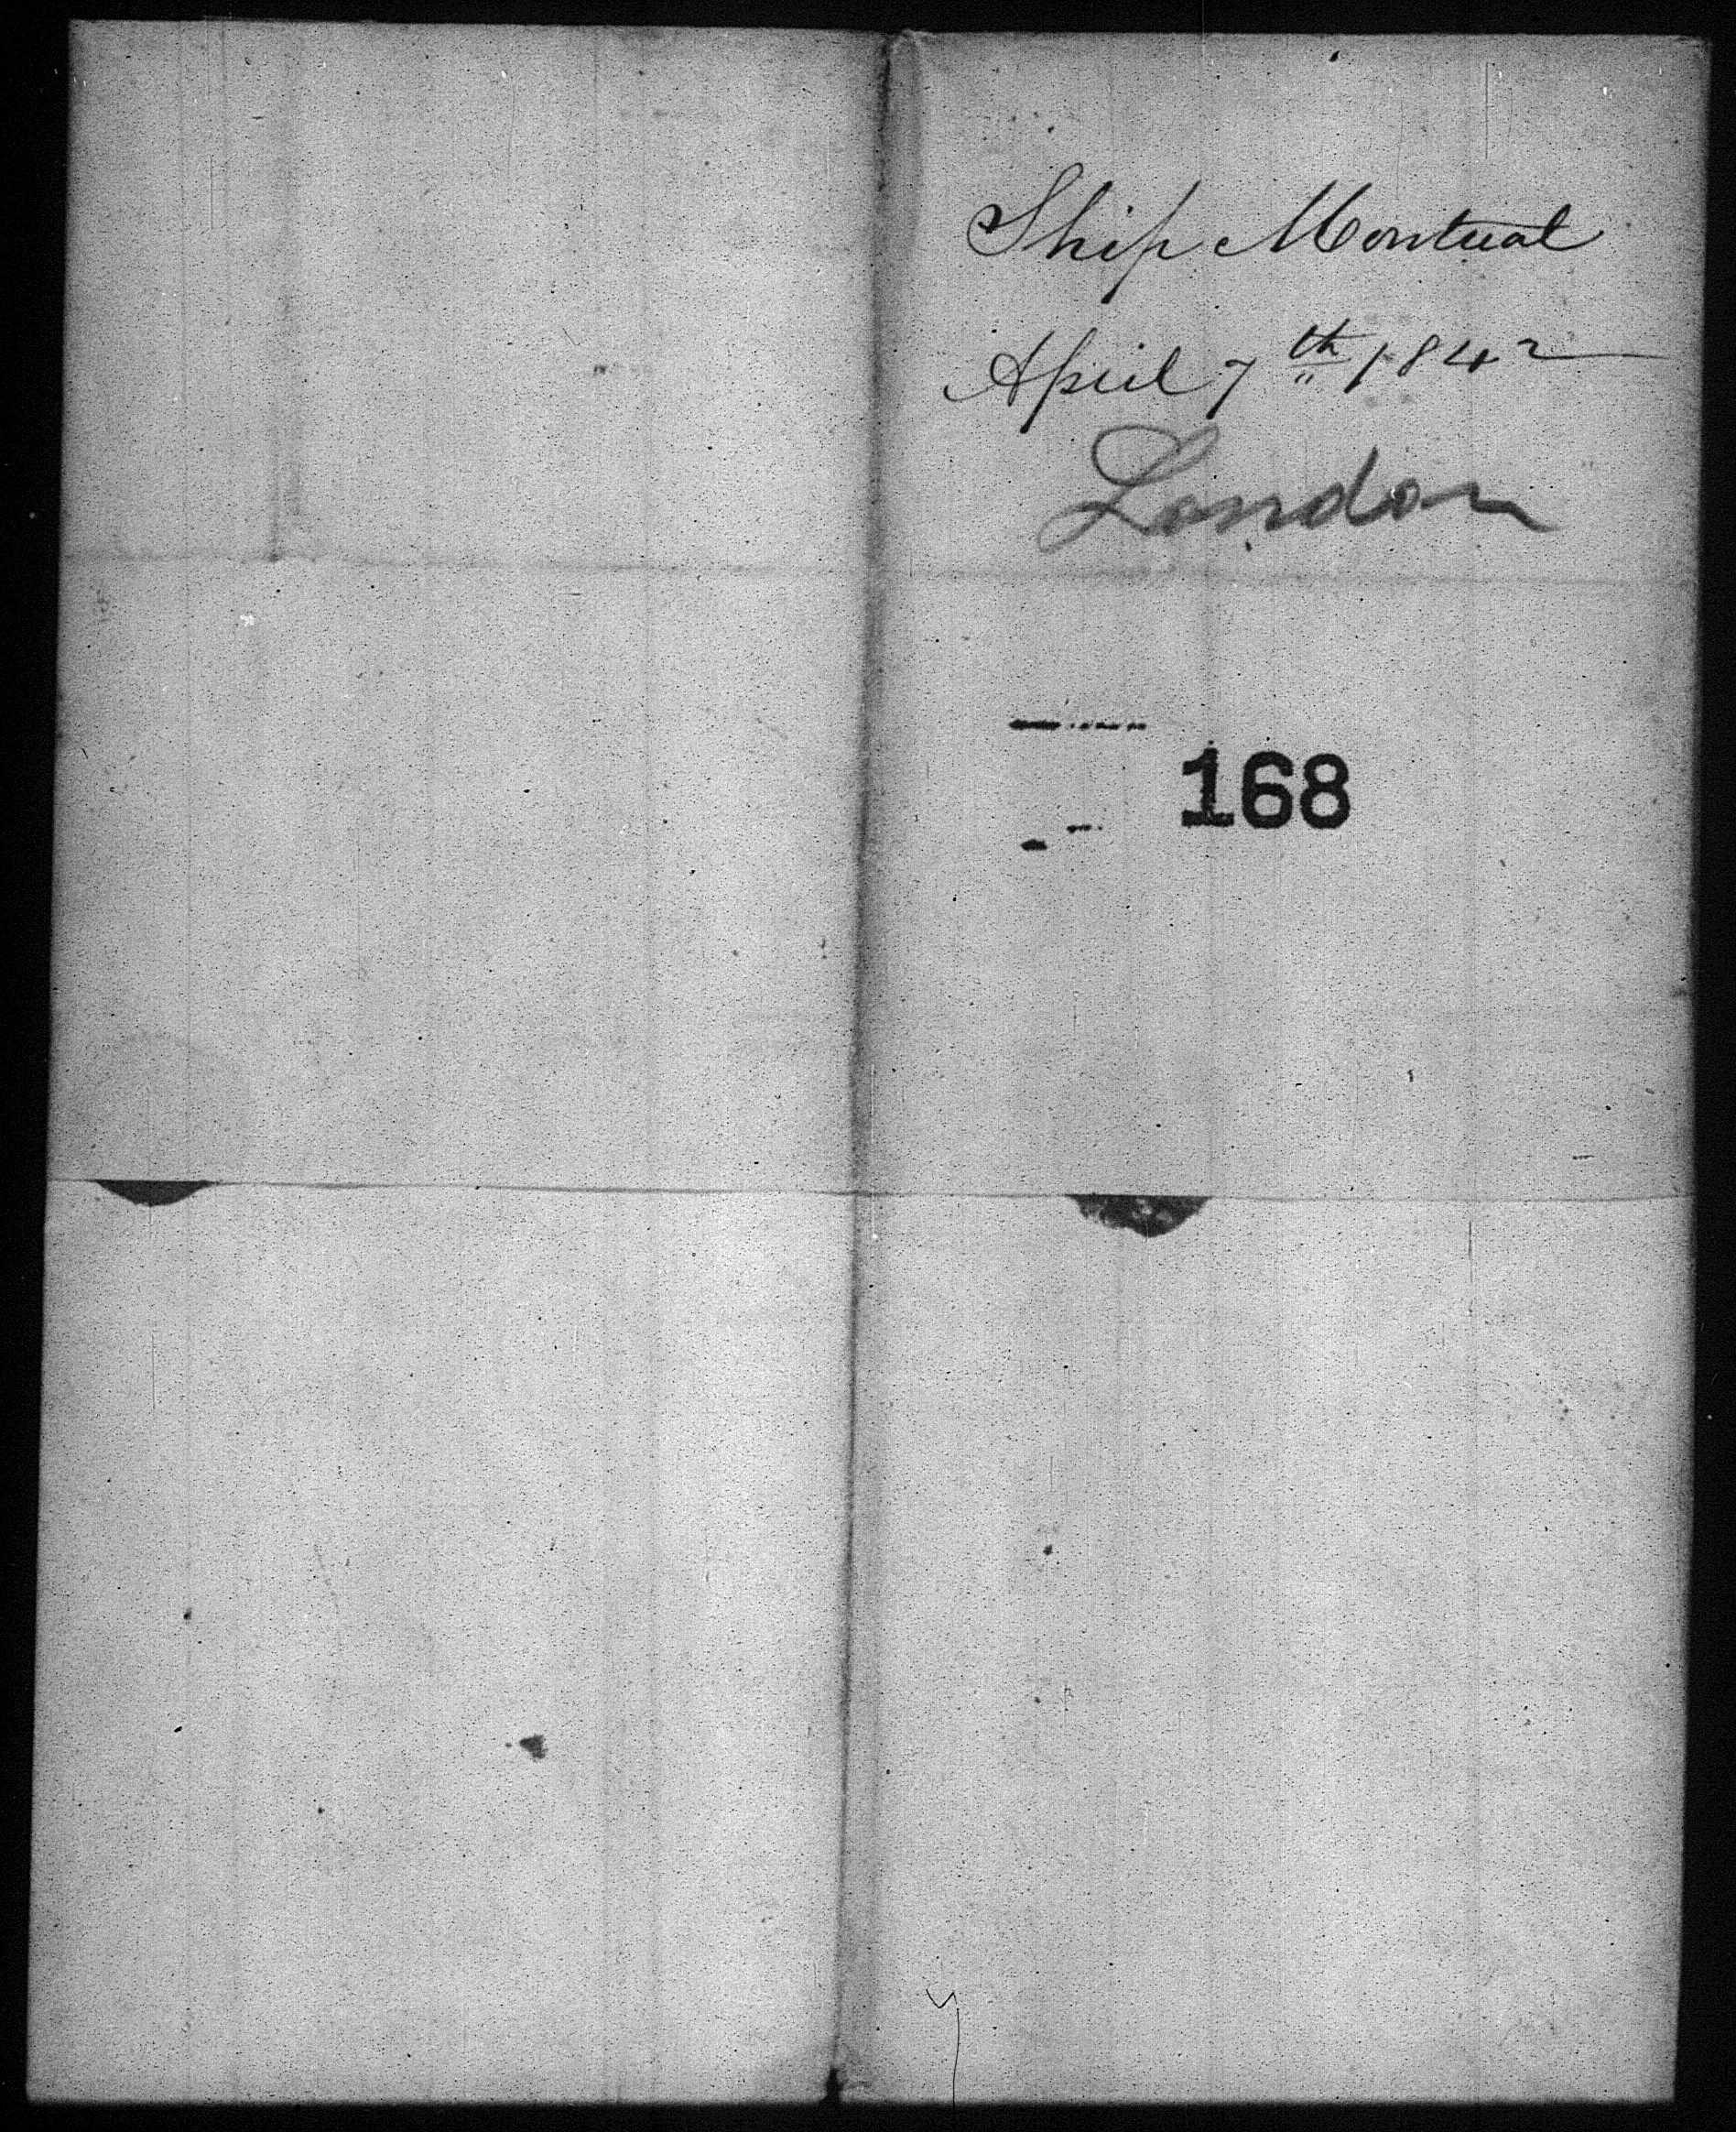 Ship Montreal
April 7th 1842
London
168